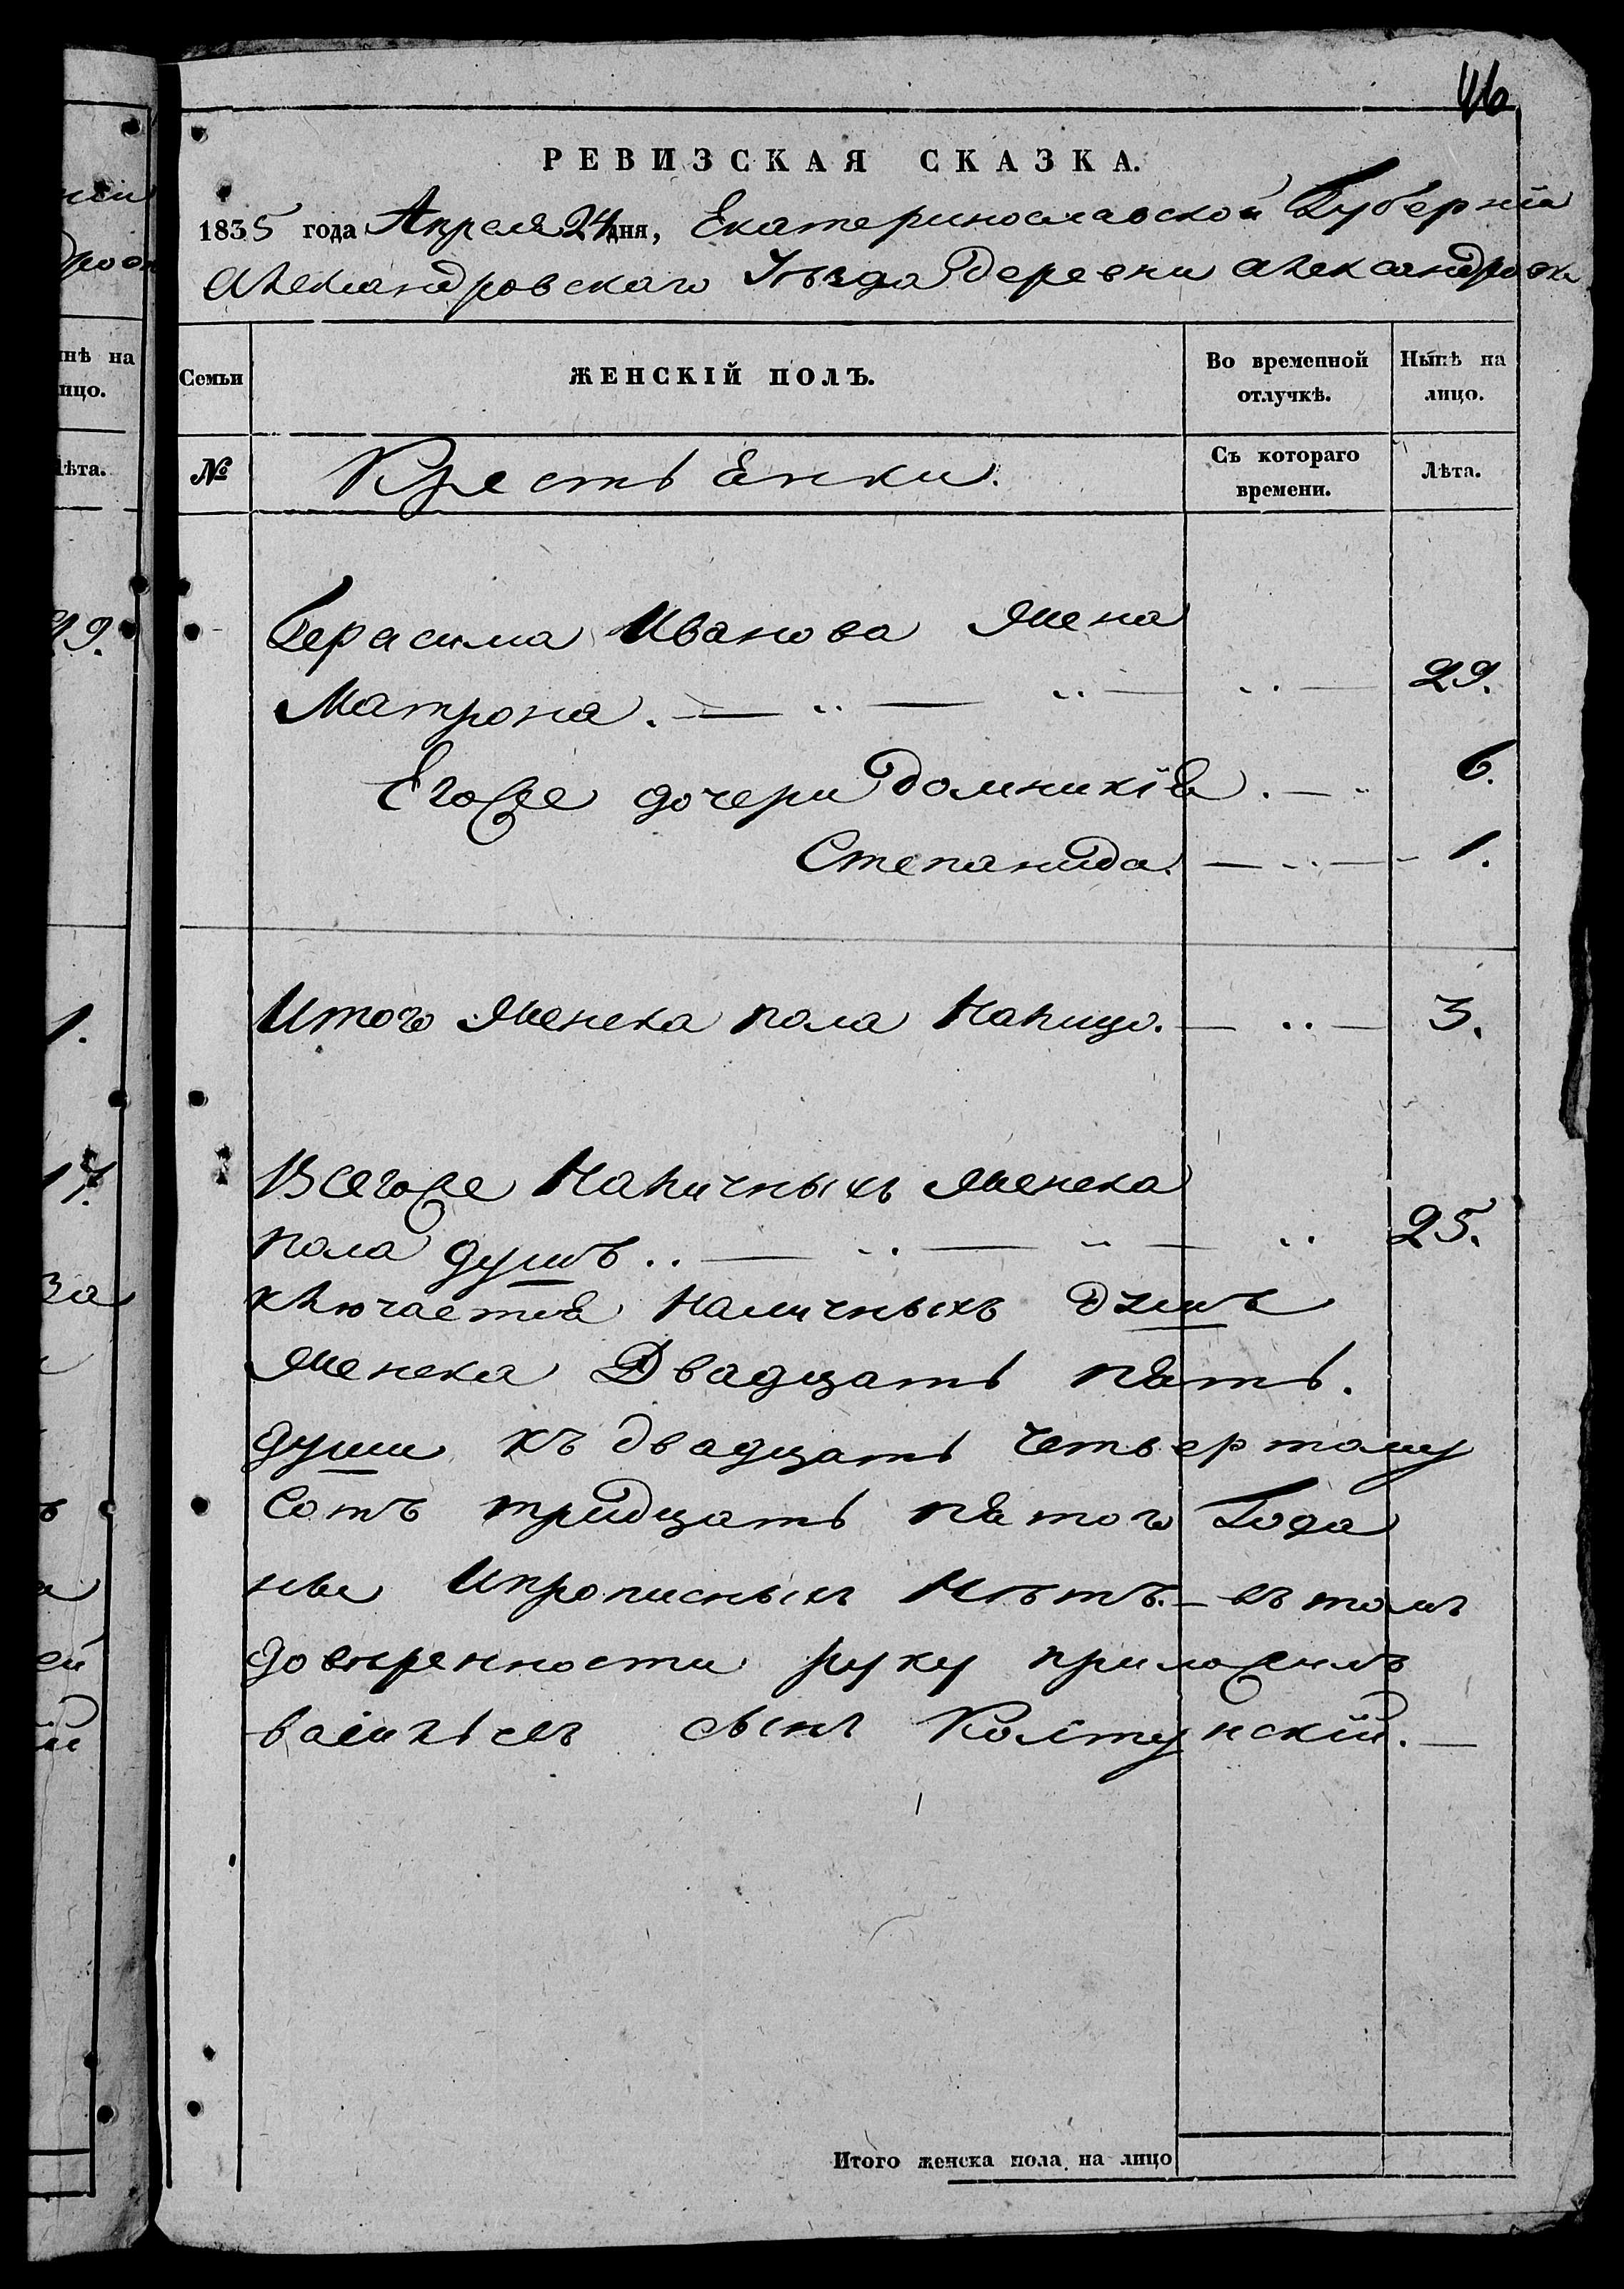 46
РЕВИЗСКАЯ СКАЗКА.
1835 года Апреля 24 дня, Екатеринославской Губерніи
Александровскаго Уѣзда деревни Александровки
Семьи
ЖЕНСКІЙ ПОЛЪ.
Во временной отлучкѣ.
Нынѣ на лицо.
№
Крестьянки.
Съ котораго времени.
Лѣта.
Герасима Иванова Жена
Матрона. — „ — „ — „ — 29.
Егоже дочери Домникія. — „ 6.
Степанида. — „ — 1.
Итого Женска пола Налицо. — „ — 3.
Всегоже Наличныхъ Женска
пола душъ.. — „ — „ — „ 25.
ключается наличныхъ душъ
Женска Двадцать пять.
души къ двадцать четвертому
сотъ тридцать пятого Года
ныи Ипрописныхъ Нѣтъ. — въ томъ
довѣренности руку приложилъ
васильевъ сынъ Колтунскій. —
Итого женска пола на лицо
нѣ на
ицо.
ѣта.
29.
1.
17.
за
ей